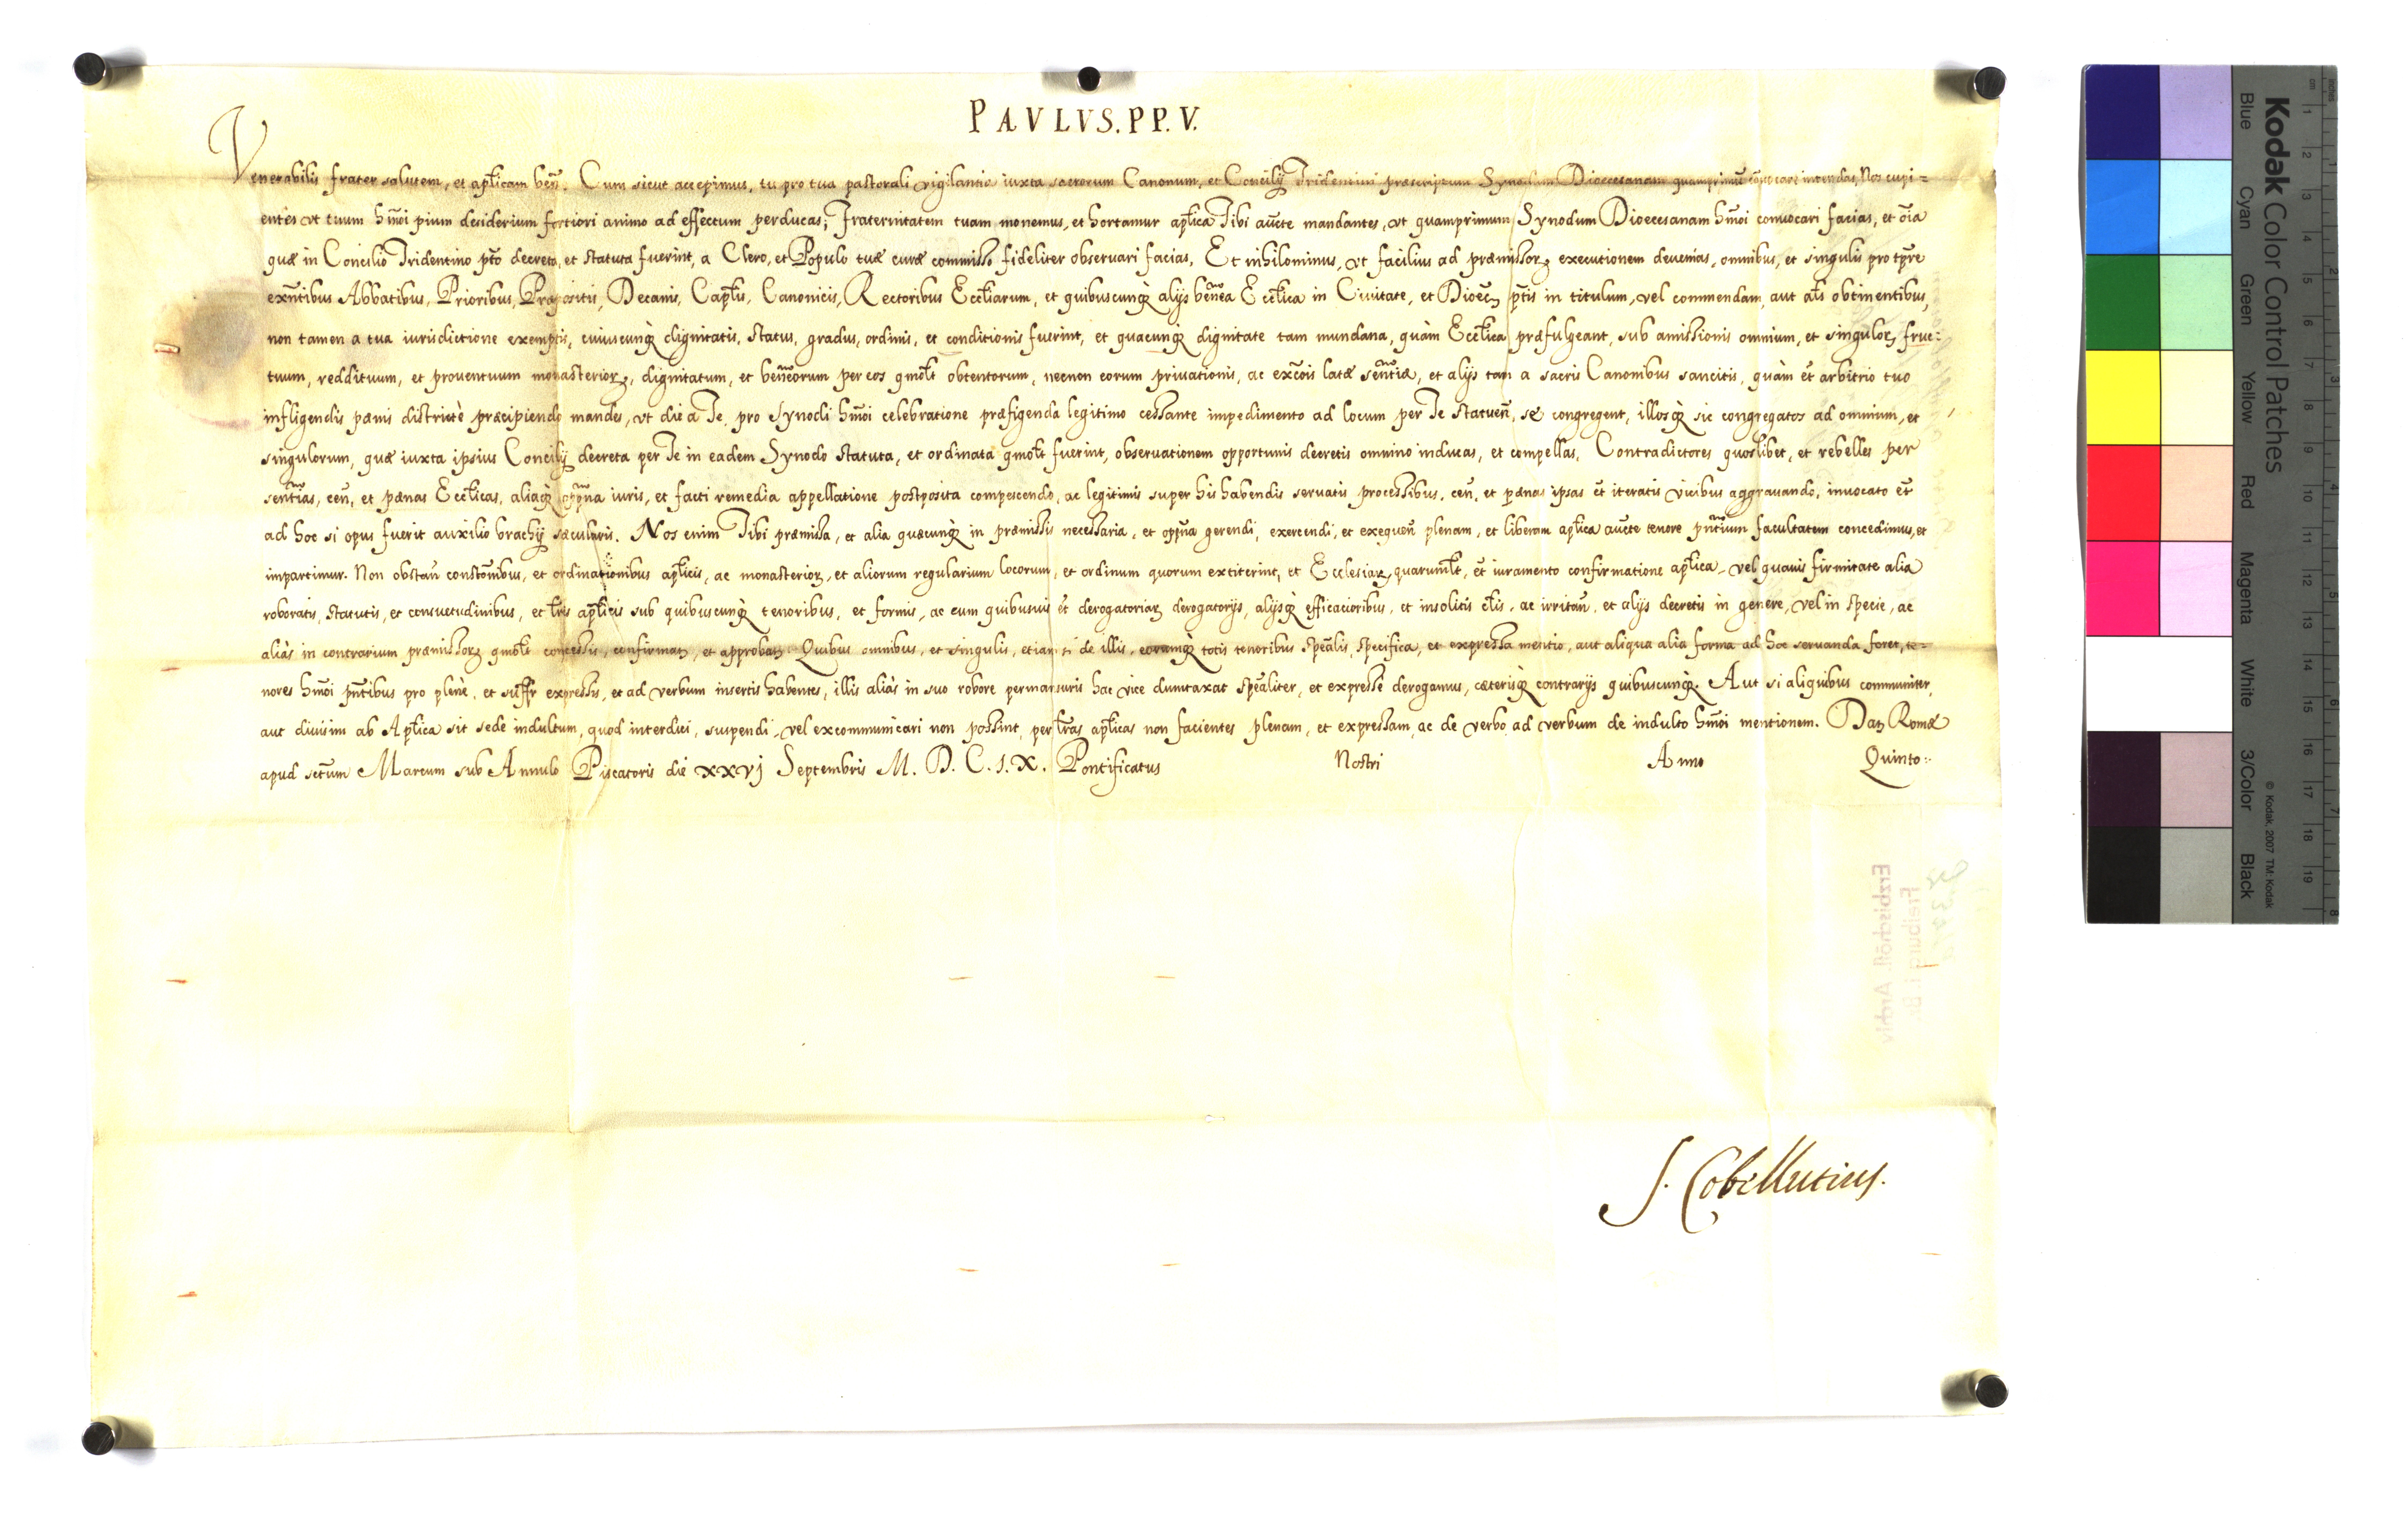 PAVLVS. PP. V.
Venerabilis frater salutem, et aplicam ben. Cum sicut accepimus, tu pro tua pastorali vigilantia iuxta sacrorum Canonum, et Concilij Tridentini præscriptum Synodum Dioecesanam quamprimum conuocare intendas, Nos cupi=
entes vt tuum hmoi pium desiderium fortiori animo ad effectum perducas, Fraternitatem tuam monemus, et hortamur aplica Tibi aucte mandantes, vt quamprimum Synodum Dioecesanam hmoi conuocari facias, et oia
quæ in Concilio Tridentino pto decreta, et statuta fuerint, a Clero, et Populo tuæ curæ commisso fideliter obseruari facias. Et nihilominus, vt facilius ad præmissorz executionem deuenias, omnibus, et singulis pro tpre
exntibus Abbatibus, Prioribus, Præpositis, Decanis, Caplis, Canonicis, Rectoribus Eccliarum, et quibuscunq alijs benea Ecclica in Ciuitate, et Dioec ptis in titulum, vel commendam, aut als obtinentibus,
non tamen a tua iurisdictione exemptis, cuiuscunq dignitatis, status, gradus, ordinis, et conditionis fuerint, et quacunq dignitate tam mundana, quàm Ecclica præfulgeant, sub amissionis omnium, et singulorz fruc=
tuum, reddituum, et prouentuum monasteriorz, dignitatum, et beneorum per eos qmolt obtentorum, necnon eorum priuationis, ac excois latæ sentiæ, et alijs tam a sacris Canonibus sancitis, quàm et arbitrio tuo
infligendis pænis districtè præcipiendo mandes, vt die a Te pro Synodi hmoi celebratione præfigenda legitimo cessante impedimento ad locum per Te statuen, se congregent, illosq sic congregatos ad omnium, et
singulorum, quæ iuxta ipsius Concilij decreta per Te in eadem Synodo statuta, et ordinata qmolt fuerint, obseruationem opportunis decretis omnino inducas, et compellas. Contradictores quoslibet, et rebelles per
sentias, cen, et pænas Ecclicas, aliaq oppna iuris, et facti remedia appellatione postposita compescendo, ac legitimis super his habendis seruatis processibus, cen, et pænas ipsas et iteratis vicibus aggrauando, inuocato et
ad hoc si opus fuerit auxilio brachij sæcularis. Nos enim Tibi præmissa, et alia quæcunq in præmissis necessaria, et oppna gerendi, exercendi, et exequen plenam, et liberam aplica aucte tenore pntium facultatem concedimus, et
impartimur. Non obstan constonibus, et ordinationibus aplicis, ac monasteriorz, et aliorum regularium locorum, et ordinum quorum extiterint, et Ecclesiarz quarumlt, et iuramento confirmatione aplica, vel quauis firmitate alia
roboratis, statutis, et consuetudinibus, et lris aplicis sub quibuscunq tenoribus, et formis, ac cum quibusuis et derogatoriarz derogatorijs, alijsq efficacioribus, et insolitis clis, ac irritan, et alijs decretis in genere, vel in specie, ac
aliàs in contrarium præmissorz qmolt concessis, confirmatz, et approbatz. Quibus omnibus, et singulis, etiam si de illis, eorumq totis tenoribus spealis, specifica, et expressa mentio, aut aliqua alia forma ad hoc seruanda foret, te=
nores hmoi pntibus pro plenè, et suffr expressis, et ad verbum insertis habentes, illis aliàs in suo robore permansuris hac vice duntaxat spealiter, et expressè derogamus, cæterisq contrarijs quibuscunq. Aut si aliquibus communiter,
aut diuisim ab Aplica sit sede indultum, quod interdici, suspendi, vel excommunicari non possint, per lras aplicas non facientes plenam, et expressam, ac de verbo ad verbum de indulto hmoi mentionem. Datz Romæ
apud sctum Marcum sub Annulo Piscatoris die xxvj Septembris M. D. C. I. X. Pontificatus Nostri Anno Quinto.
S. Cobellutius.
Erzbischöfl. Archiv
Freiburg i. Br.
Kodak Color Control Patches
Blue Cyan Green Yellow Red Magenta White 3/Color Black
© Kodak, 2007 TM: Kodak
cm 1 2 3 4 5 6 7 8 9 10 11 12 13 14 15 16 17 18 19
inches 1 2 3 4 5 6 7 8